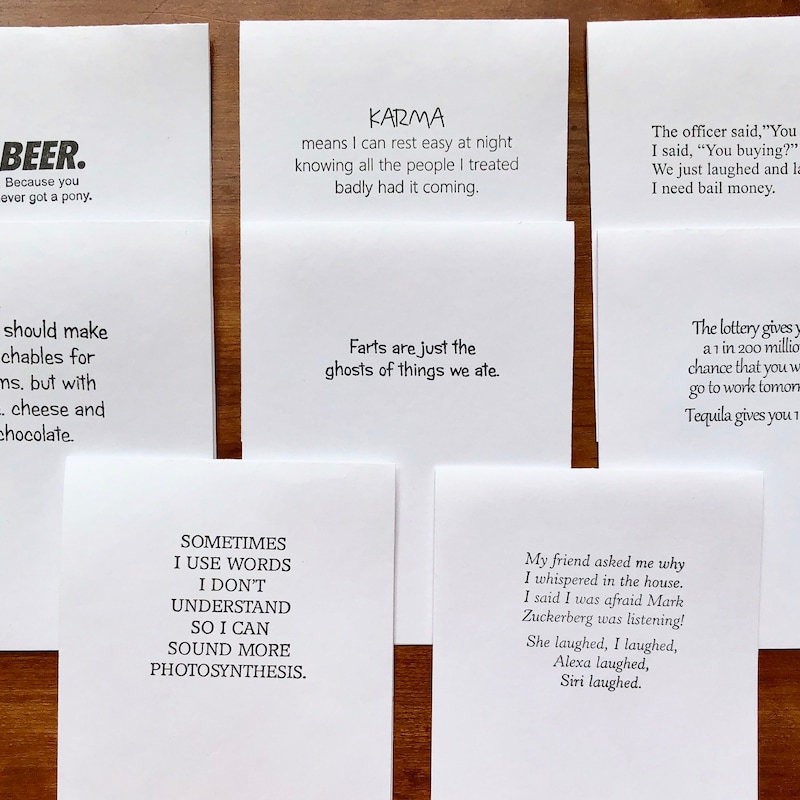 BEER.
Because you
ever got a pony.
KARMA
means I can rest easy at night
knowing all the people I treated
badly had it coming.
The officer said,"You
I said, “You buying?”
We just laughed and la
I need bail money.
should make
chables for
ms. but with
. cheese and
chocolate.
Farts are just the
ghosts of things we ate.
The lottery gives y
a 1 in 200 millio
chance that you w
go to work tomor
Tequila gives you 1
SOMETIMES
I USE WORDS
I DON'T
UNDERSTAND
SO I CAN
SOUND MORE
PHOTOSYNTHESIS.
My friend asked me why
I whispered in the house.
I said I was afraid Mark
Zuckerberg was listening!
She laughed, I laughed,
Alexa laughed,
Siri laughed.